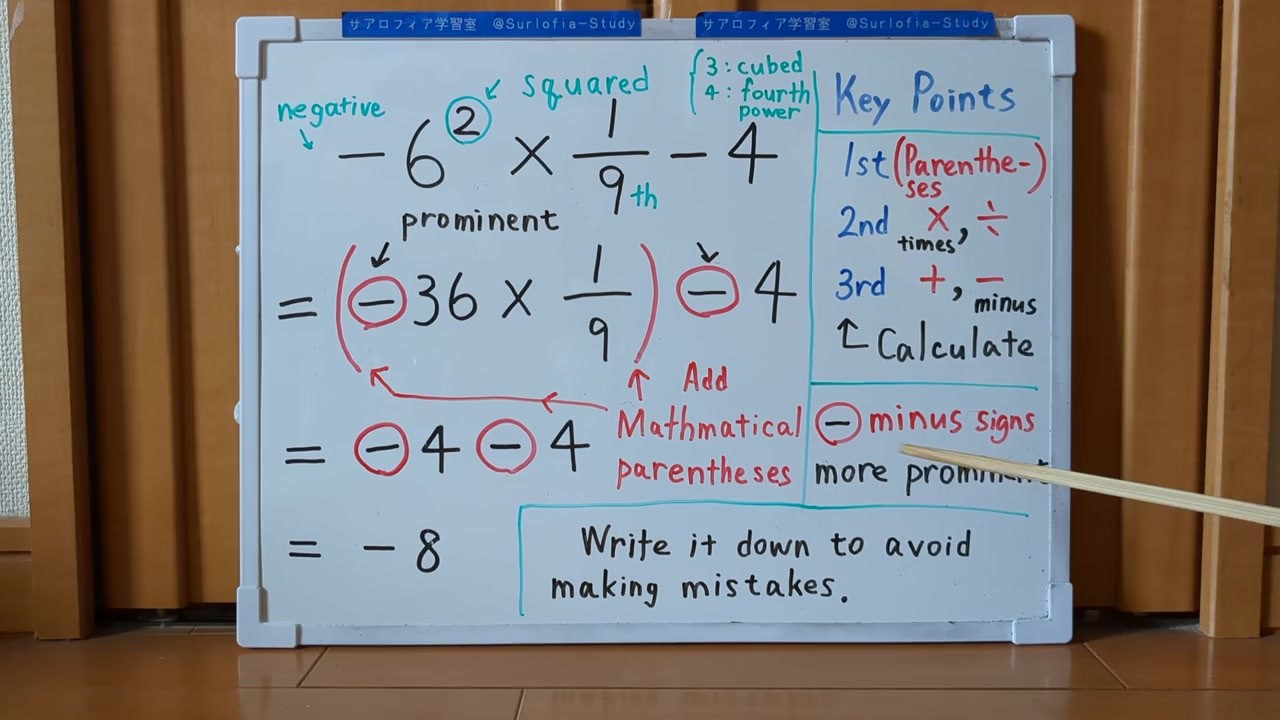 サアロフィア学習室 @Surlofia-Study
サアロフィア学習室 @Surlofia-Study
negative
squared
3 : cubed
4 : fourth
power
− 6² × 1/9 th − 4
prominent
= (− 36 × 1/9) − 4
Add
Mathmatical
parentheses
= − 4 − 4
= − 8
Key Points
1st (Parenthe-)
ses
2nd ×, ÷
times
3rd +, −
minus
Calculate
− minus signs
more prominent
Write it down to avoid
making mistakes.